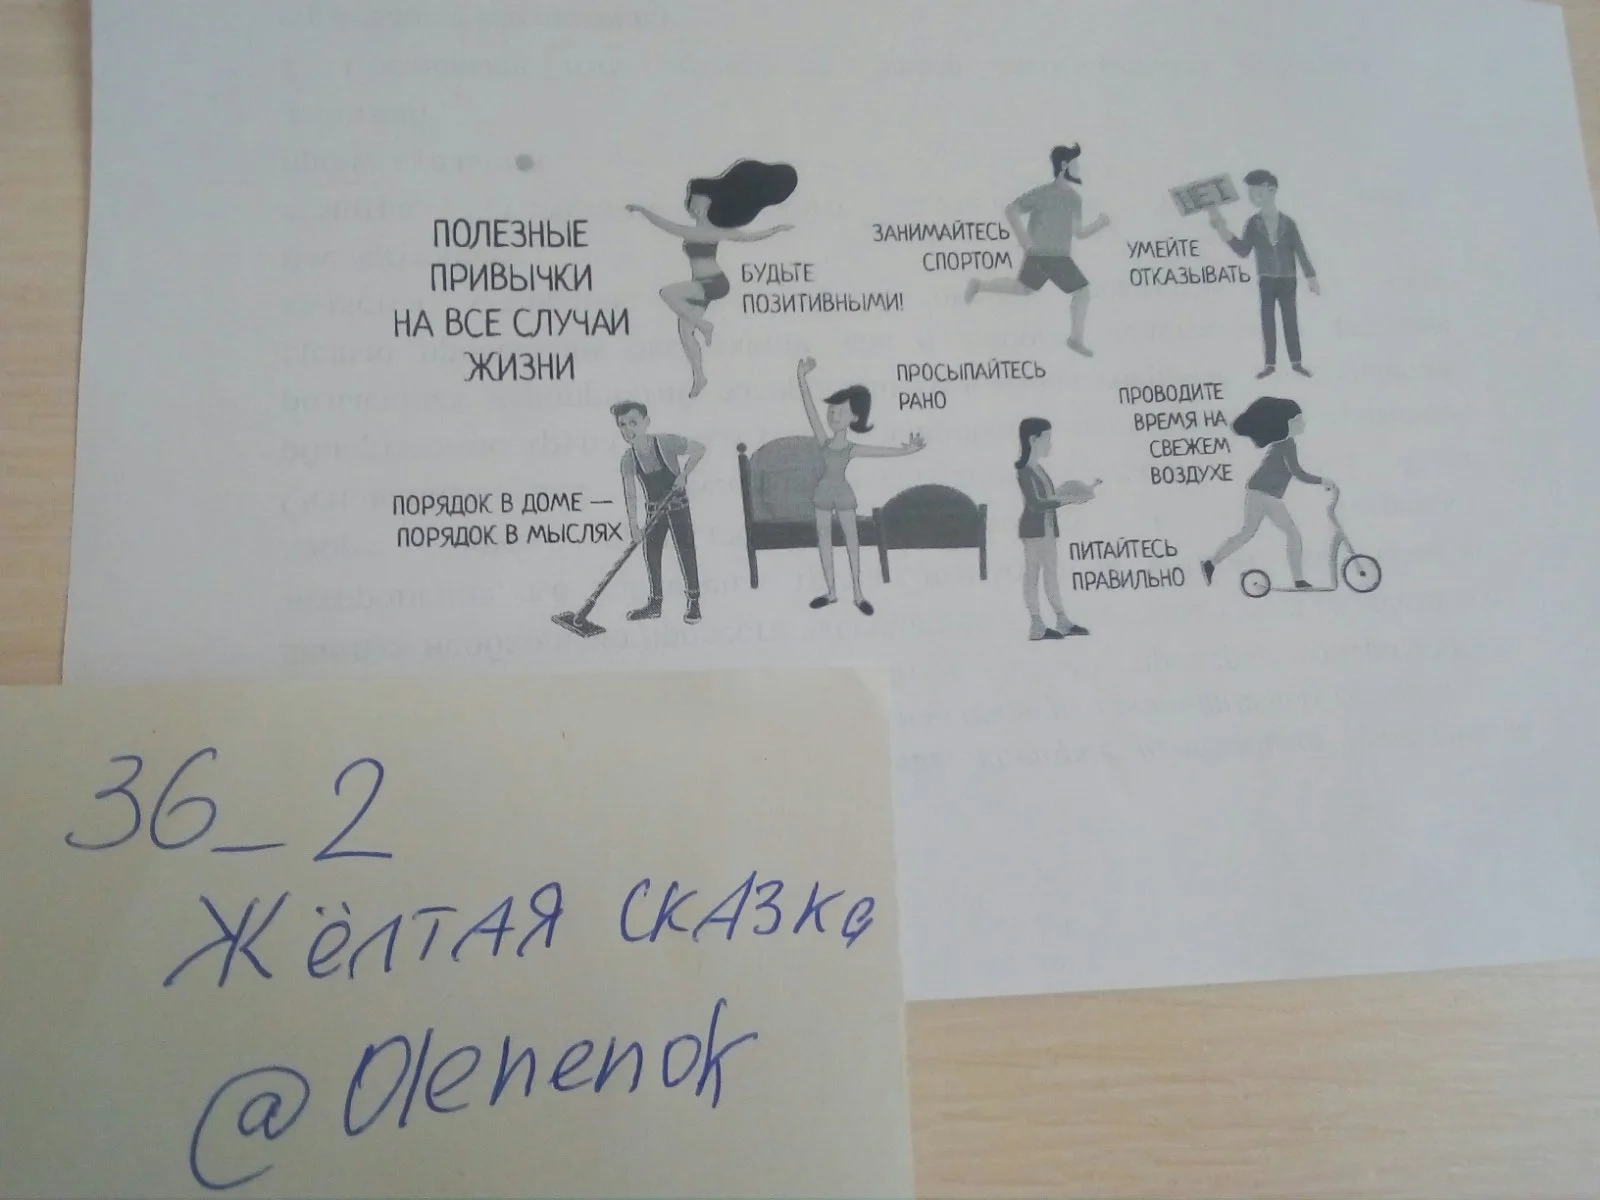 ПОЛЕЗНЫЕ
ПРИВЫЧКИ
НА ВСЕ СЛУЧАИ
ЖИЗНИ
БУДЬТЕ
ПОЗИТИВНЫМИ!
ЗАНИМАЙТЕСЬ
СПОРТОМ
НЕТ
УМЕЙТЕ
ОТКАЗЫВАТЬ
ПОРЯДОК В ДОМЕ —
ПОРЯДОК В МЫСЛЯХ
ПРОСЫПАЙТЕСЬ
РАНО
ПИТАЙТЕСЬ
ПРАВИЛЬНО
ПРОВОДИТЕ
ВРЕМЯ НА
СВЕЖЕМ
ВОЗДУХЕ
36_2
ЖЁЛТАЯ СКАЗКа
@Olenenok